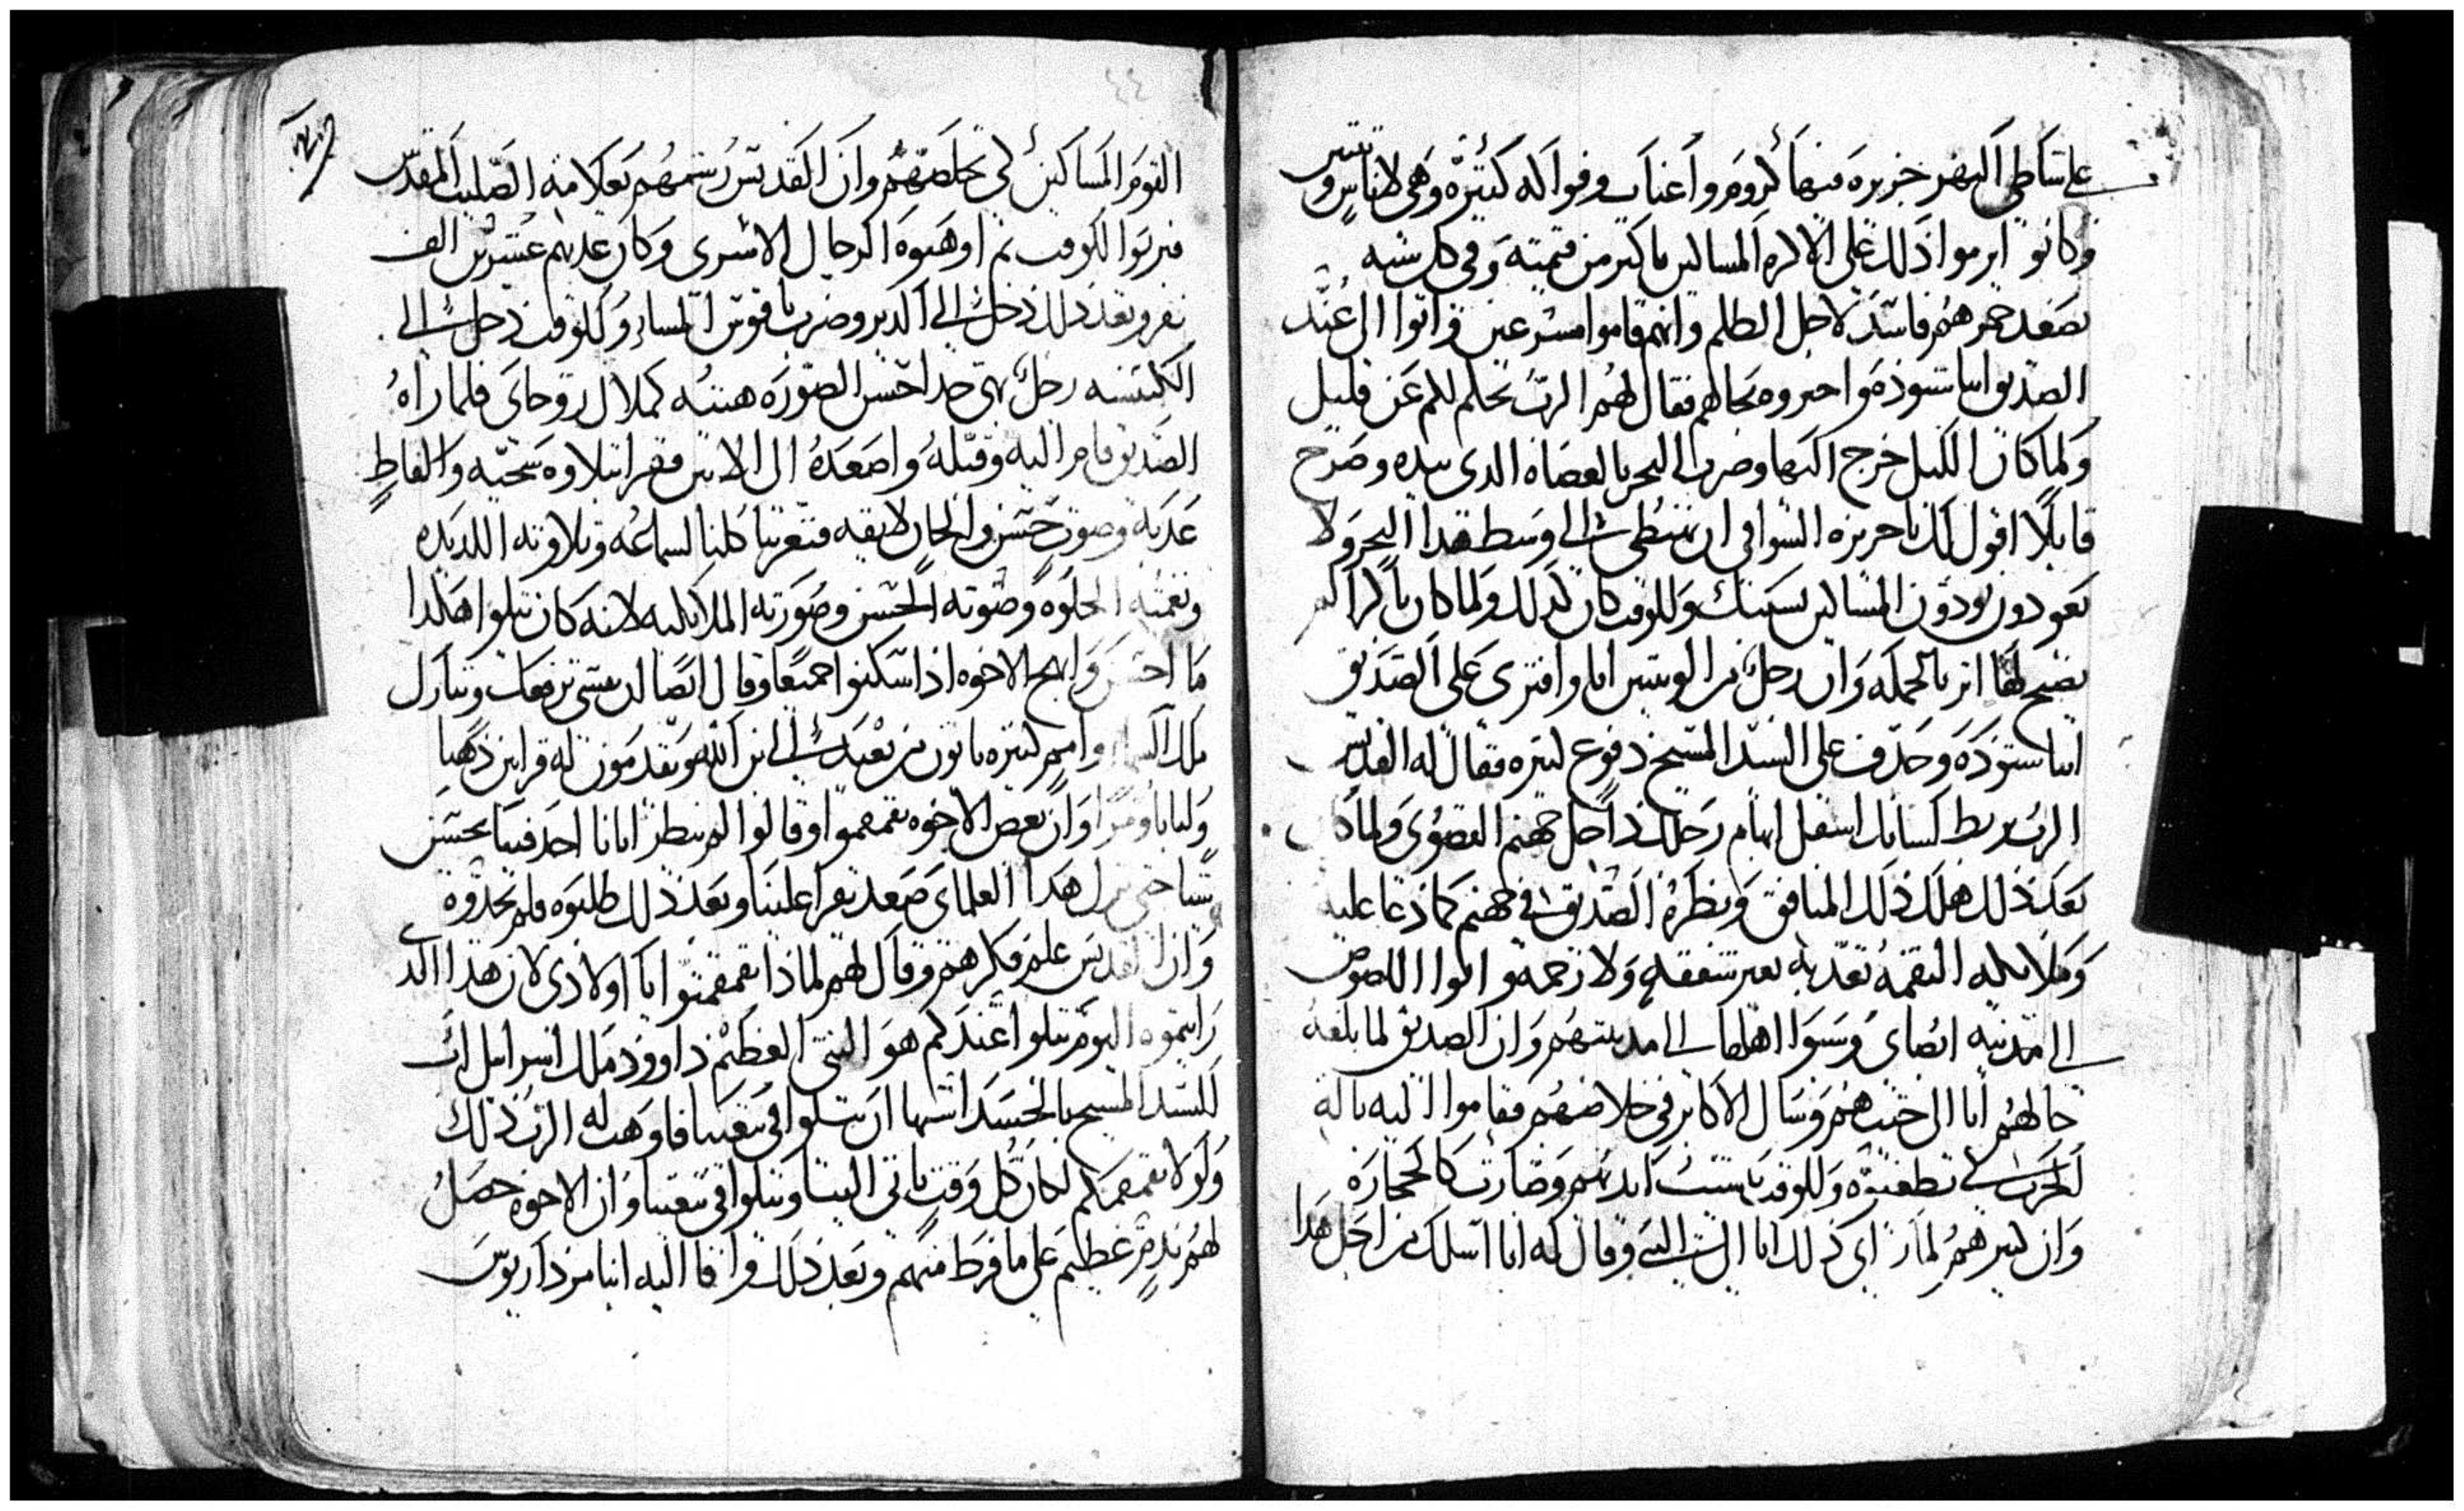 على شاطى النهر جزيره فيها كروم واعناب وفواكه كتيره وهى لاناس وتنيين
وكانو ايرموا ذلك على الاكره المساكين باكتر من قيمته وفى كل سنه
تصعد خمرهم فاسده لاجل الظلم وانهم قاموا مسرعين واتوا الى عند
الصديق انبا شنوده واخبروه بحالهم فقال لهم الرب يحكم لكم عن قليل
ولما كان الليل خرج اليها وضرب البحر بالعصاه الدى بيده وصرح
قايلا اقول لك يا جزيره السواقى ان تنتطى الى وسط هدا البحر ولا
يعودون يودون المساكين بسببك وللوقت كان كدلك ولما كان باكرا لم
يصبح لها اتر بالجمله وان رجل من الوتنيين اتا وافترى على الصديق
انبا شنوده وجدف على السيد المسيح دفوع كتيره فقال له القديس
الرب يربط لسانك اسفل ابهام رجلك داخل جهنم القصوى ولما كان
بعد ذلك هلك ذلك المنافق ونظره الصديق فى جهنم كما دعا عليه
وملايكه النقمه تعدبه بغير شفقه ولا رحمه واتوا اللصوص
الى مدينه ابصاى وسبوا اهلها الى مدينتهم وان الصديق لما بلغه
حالهم اتا الى حيت هم وسال الاكابر فى خلاصهم فقاموا اليه بالة
الحرب لى يطعنوه وللوقت يبست ايديهم وصارت كالحجاره
وان كبيرهم لما راى ذلك اتا الى النبى وقال له انا اسلك من اجل هدا
القوم المساكين لكى تخلصهم وان القديس رشمهم بعلامة الصليب المقدس
فبريوا للوقت تم اوهبوه الرجال الاسرى وكان عدتهم عشرين الف
نفر وبعد ذلك دخل الى الدير وضرب ناقوس المساء وللوقت دخل الى
الكنيسه رجل بهى جدا حسن الصوره هيئته كملاك روحانى فلما راه
الصديق قام اليه وقبله واصعده الى الانبل فقرا بتلاوه سجيه والفاظ
عدبه وصوت حسن والحان لايقه فتعزينا كلنا لسماعه وتلاوته اللديده
ونغمته الحلوه وصوته الحسن وصورته الملايكيه لانه كان يتلوا هكدا
ما احسن وابهج الاخوه اذا سكنوا جميعا وقال ايضا لك يشى ترفعك وتبارك
ملك السماء وامم كتيره ياتون من بعيد الى ابن الله ويقدمون له قرابين ذهبا
ولبانا ومرا وان بعض الاخوه تقمقموا وقالوا لم ينظر ابانا احد فينا يحسن
شيا حتى ترك هدا العلمانى صعد يقرا علينا وبعد ذلك طلبوه فلم يجدوه
وان القديس علم فكرهم وقال لهم لماذا تقمقمتوا يا اولادى لان هذا الدى
رايتموه اليوم يتلوا عندكم هو النبى العظيم داوود ملك اسراييل اب
للسيد المسيح بالجسد اشتها ان يتلوا فى بيعتنا فاوهب له الرب ذلك
ولولا تقمقمكم لكان كل وقت ياتى الينا ويتلوا فى بيعتنا وان الاخوه حصل
لهم ندم عظيم على ما فرط منهم وبعد ذلك وافا اليه انبا مرداريوس